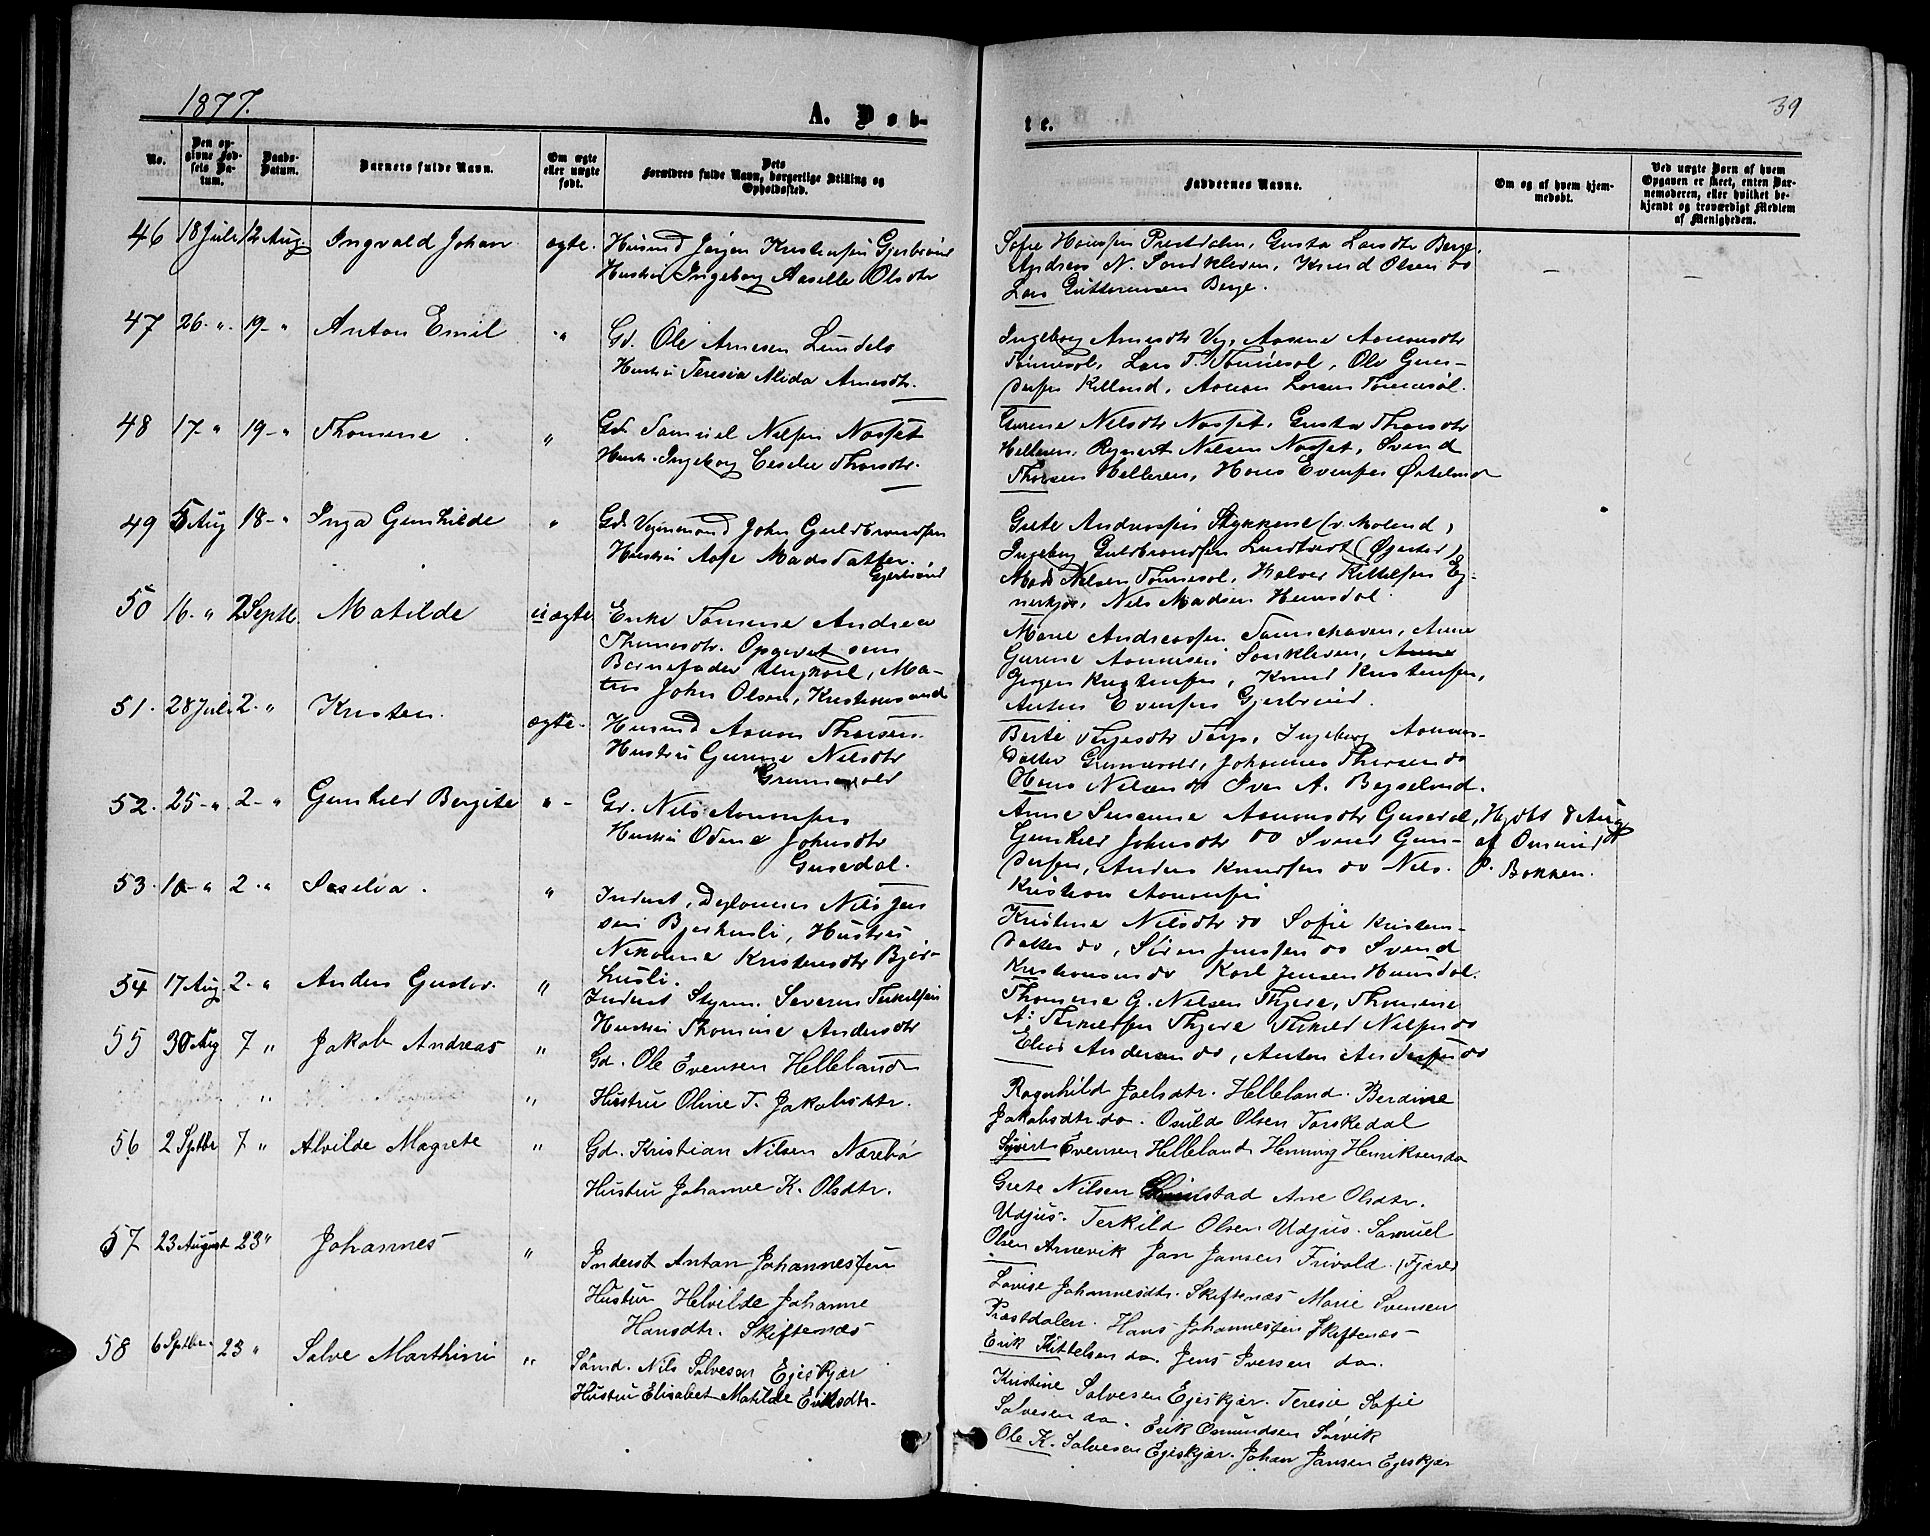 1877.
A. Døb-
te.
39
No.
Den opgivne Fødsels Datum.
Daabs-Datum.
Barnets fulde Navn.
Om ægte eller uægte født.
Dets Forældres fulde Navn, borgerlige Stilling og Opholdssted.
Faddernes Navne.
Om og af hvem hjemmedøbt.
Ved uægte Børn af hvem Opgaven er skeet, enten Barnemoderen, eller hvilket bekjendt og troværdigt Medlem af Menigheden.
46 18 Juli 12 Aug. Ingvald Johan ægte. Husmd Jørgen Kristensen Gjerbrønd
Hustru Ingeborg Aaselle Olsdtr
Sofie Hansen Prestdalen, Gusta Larsdtr Berge,
Andreas N. Sandkleven, Knud Olsen do
Lars Guttormsen Berge.
47 26. " 19- " Anton Emil " Gd. Ole Arnesen Lundels
Hustru Teresia Alida Arnesdtr.
Ingeborg Arnesdtr Aasene Aanonsdtr
Tønnesøl, Lars T. Tønnesøl, Ole Gun-
dersen Killand, Aanon Larsen Tønnesøl.
48 17- " 19- " Thomine " Gd. Samuel Nilsen
Hustr. Ingeborg Thorsdtr.
Gurine Nilsdtr Gusta Thorsdtr
Helleren, Nilsen Svend
Thorsen Helleren, Hans Evensen
49 5 Aug 18- " Inga Gunhilde " Gd. John Guldbrandsen
Hustru Aase Madsdatter.
Gjerbrønd
Grete Andersen
Ingeborg Guldbrandsen
Mads Nilsen Tønnesøl, Halvor Kittelsen
Nils Madsen Homsdal.
50 16. " 2 Septb. Matilde uægte. Enke Tomine Andrea
Thomasdtr. Opgevet som
Barnefader Ungkarl, Ma-
tros John Olsen, Kristiansand
Marie Andreassen Anne
Gurine Aanonsen Sankleven, Anne
Jørgen Kristensen, Knud Kristensen,
Anton Evensen Gjerbrønd.
51. 28 Juli 2- " Kristen. ægte- Husmd Aanon Thorsen
Hustru Gurine Nilsdtr
Berte Terjesdtr Ingeborg Aanons-
datter Johannes Thorsen do
Hans Nilsen do Iver A.
52. 25- " 2- " Gunhild Bergite " - Gd. Nils Aanonsen
Hustru Odine Johnsdtr
Gusedal.
Anne Susanne Aanonsdtr Gusedal, Hjdbt 8 Aug
Gunhild Johnsdtr do Svend Gun- af
dersen, Anders Knudsen do Nils P. Bakken.
Kristian Aanonsen
53. 10- " 2. " " Inderst, Nils Jen
sen Hustru
Nikoline Kristensdtr
Kristine Nilsdtr do Sofie Kristens-
datter do, Søren Jenssen do Svend
Kristiansen do Karl Jensen Homsdal.
54 17 Aug. 2- " Anders Gustav. " Inderst Severin Terkelsen
Hustru Thomine Andersdtr
Thomine G. Nilsen Thomine
A. Terkildsen Terkild Nilsen do
Elias Andersen do, Anton Andersen do
55 30 Aug 7 " Jakob Andreas " Gd. Ole Evensen Helleland
" " Hustru Oline T. Jakobsdtr.
Ragnhild Joelsdtr. Helleland. Berdine
Jakobsdtr do. Osuld Olsen Torskedal
Syvert Evensen Helleland Henning Henriksen do
56 2 Sptbr 7 " Alvilde Magrete " Gd. Kristian Nilsen Nærebø
Hustru Johanne K. Olsdtr.
Grete Nilsen Ane Olsdtr.
Udjus. Terkild Olsen Udjus. Samuel
Olsen Arnevik Jan Jansen Frivold. (Fjære)
57 23 August 23 " Johannes " Inderst Anton Johannessen
Hustru Helvilde Johanne
Hansdtr. Skiftenæs
Lovise Johannesdtr. Skiftenæs Marie Svensen
Præstdalen. Hans Johannessen Skiftenæs -
Erik Kittelsen do. Jens Iversen do.
58 6 Sptbr 23 " Salve Marthini " Sømd. Nils Salvesen Egeskjær
Hustru Elisabet Matilde Eriksdtr.
Kristine Salvesen Egeskjær. Teresie Sofie
Salvesen do. Erik Osmundsen Sørvik
Ole K. Salvesen Egeskjær. Johan Jansen Egeskjær